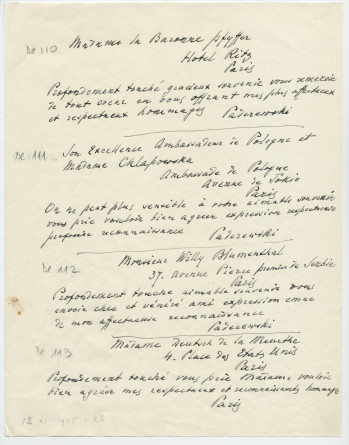 De 110
Madame la Baronne Pfyffer
Hotel Ritz
Paris
Profondement touché gracieux souvenir vous remercie
de tout coeur en vous offrant mes plus affectueux
et respectueux hommages
Paderewski
De 111
Son Excellence Ambassadeur de Pologne et
Madame Chlapowska
Ambassade de Pologne
Avenue de Tokio
Paris
On ne peut plus sensible à votre aimable souvenir
vous prie vouloir bien agreer expression respectueuse
profonde reconnaissance
Paderewski
De 112
Monsieur Willy Blumenthal
37. Avenue Pierre premier de Serbie
Paris
Profondement touché aimable souvenir vous
envoie cher et vénéré ami expression emue
de mon affectueuse reconnaissance
Paderewski
De 113
Madame Deutsch de la Meurthe
4. Place des Etats Unis
Paris
Profondement touché vous prie Madame vouloir
bien agréer mes respectueux et reconnaissants hommages
Paris